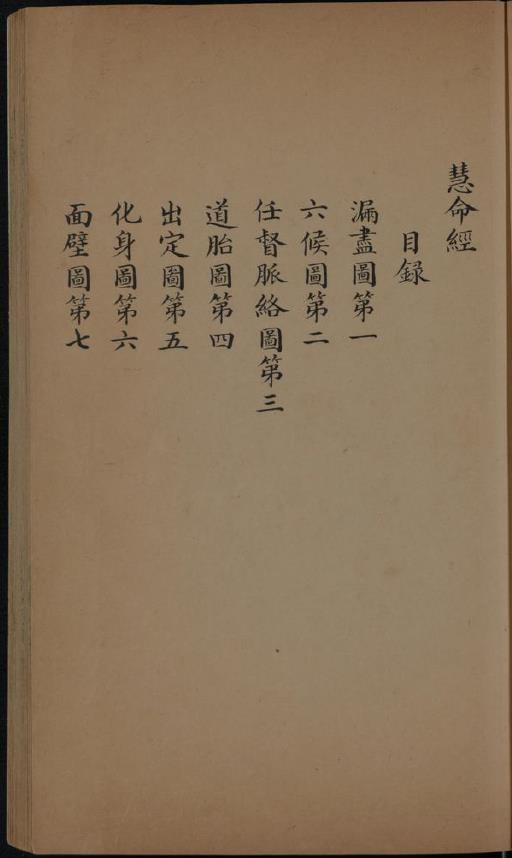 慧命經
目録
漏盡圖第一
六候圖第二
任督脈絡圖第三
道胎圖第四
出定圖第五
化身圖第六
面壁圖第七